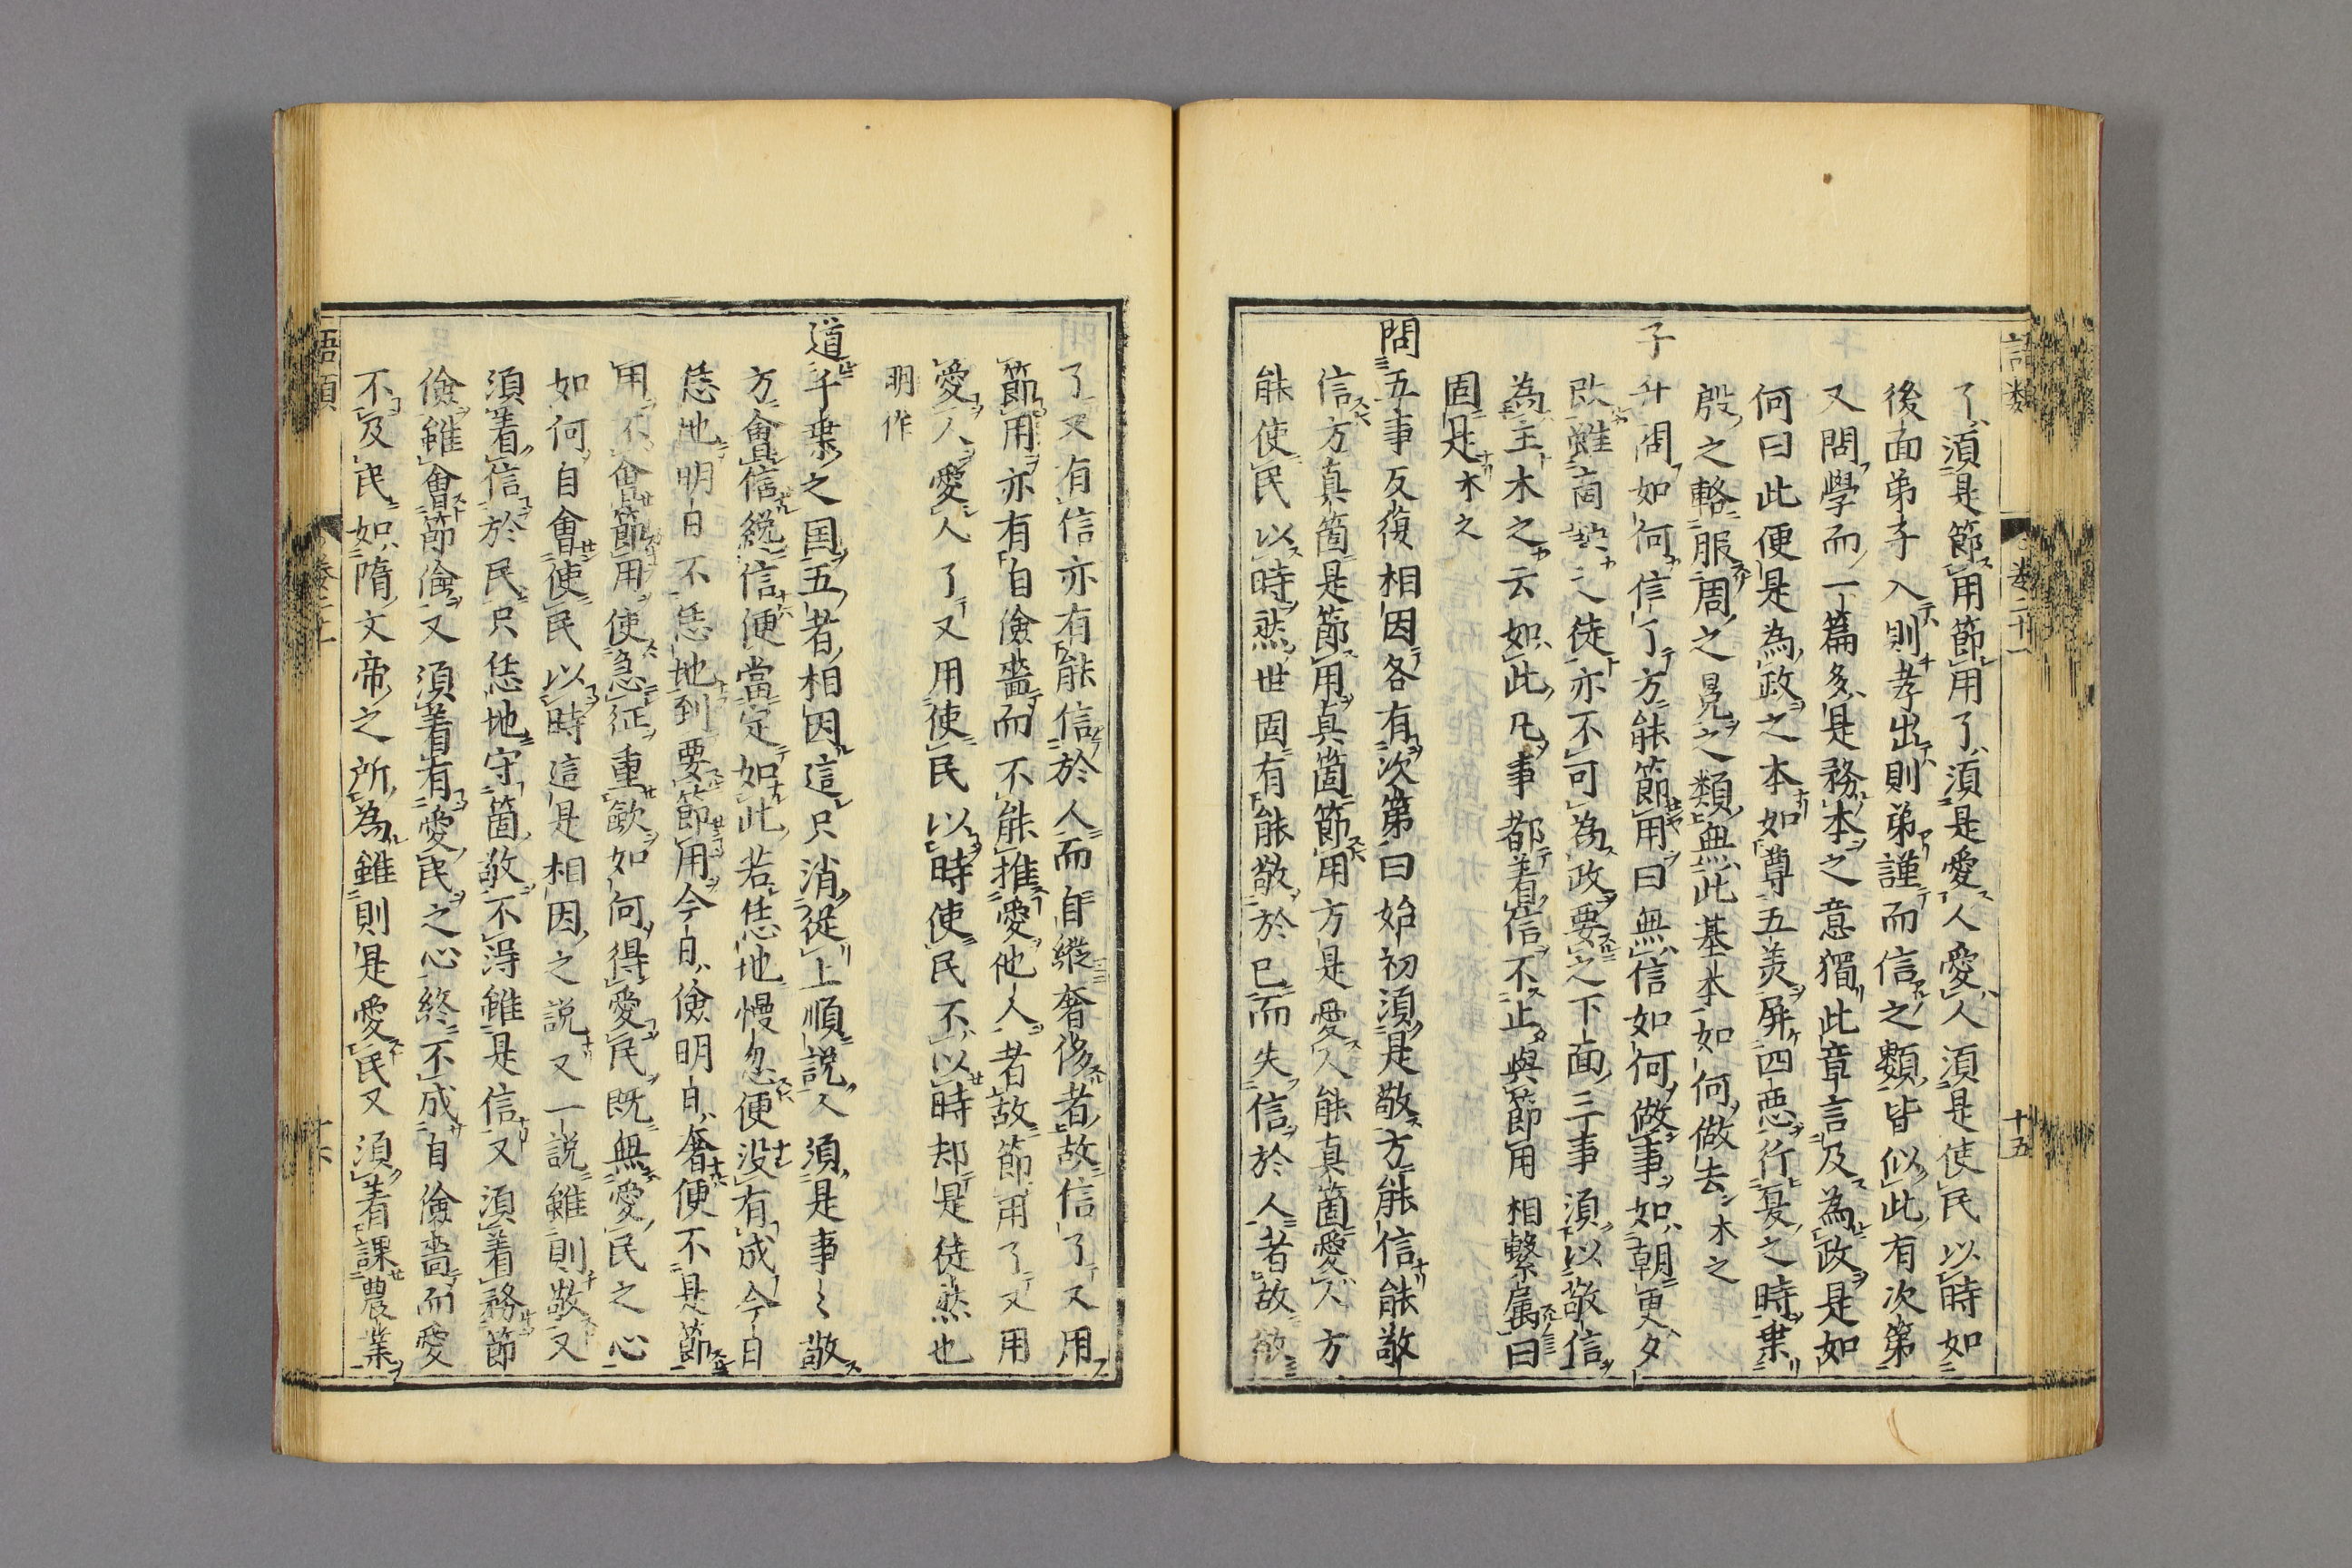 語類
卷二十一
十五
了須是節用節用了須是愛人愛人須是使民以時如
後面弟子入則孝出則弟謹而信之類皆似此有次第
又問學而一篇多是務本之意獨此章言及為政是如
何曰此便是為政之本如尊五美屏四悪行夏之時乗
殷之輅服周之冕之類無此基本如何做去木之
子升問如何信了方能節用曰無信如何做事如朝更夕
改雖商鞅之徒亦不可為政要之下面三事須以敬信
為主木之云如此凡事都着信不止與節用相繫属曰
固是木之
問五事反復相因各有次第曰始初須是敬方能信能敬
信方真箇是節用真箇節用方是愛人能真箇愛人方
能使民以時然世固有能敬於己而失信於人者故敬
了又有信亦有能信於人而自縱奢侈者故信了又用
節用亦有自儉嗇而不能推愛他人者故節用了又用
愛人愛人了又用使民以時使民不以時却是徒然也
明作
道千乗之国五者相因這只消從上順説人須是事〻敬
方會信纔信便當定如此若恁地慢忽便没有成今日
恁地明日不恁地到要節用今日儉明日奢便不是節
用不會節用使急征重歛如何得愛民既無愛民之心
如何自會使民以時這是相因之説又一説雖則敬又
須着信於民只恁地守箇敬不得雖是信又須着務節
儉雖會節儉又須着有愛民之心終不成自儉嗇而愛
不及民如隋文帝之所為雖則是愛民又須着課農業
語類
卷二十一